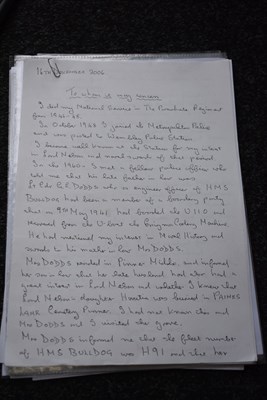 16th November 2006
To whom it may concern
I did my National Service in The Parachute Regiment
from 1946-48.
In October 1948 I joined the Metropolitan Police
and was posted to Wembley Police Station.
I became well known at the Station for my interest
in Lord Nelson and naval records of that period.
In the 1960s I met a fellow police officer who
told me that his late father in law was
Lt Cdr G.E. DODDS who as engineer officer of HMS
BULLDOG had been a member of a boarding party
that on 9th May 1941 had boarded the U110 and
removed from the U-boat the Enigma Coding Machine.
He had mentioned my interest in Naval History and
records to his mother in law Mrs DODDS.
Mrs DODDS resided in Pinner Middx, and informed
her son in law that her late husband had also had a
great interest in Lord Nelson and whether I knew that
Lord Nelson's daughter Horatia was buried in PAINES
LANE Cemetery Pinner. I had not known this and
Mrs DODDS and I visited the grave.
Mrs DODDS informed me that the fleet number
of HMS BULLDOG was H91 and that her